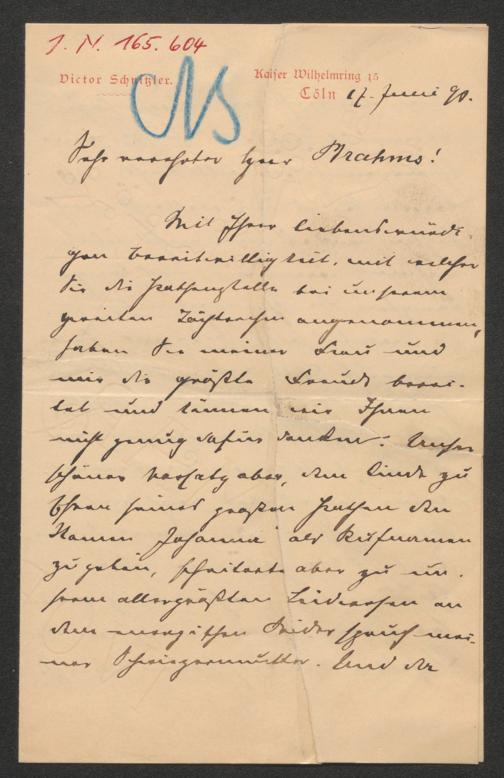 J. N. 165.604
NS
Victor Schnitzler.
Kaiser Wilhelmring 15
Cöln 17. Juni 90.
Sehr verehrter Herr Brahms!
Mit Ihrer liebenswürdi-
gen Bereitwilligkeit, mit welcher
Sie die Pathenstelle bei unserem
zweiten Töchterchen angenommen,
haben Sie meiner Frau und
mir die größte Freude berei-
tet und können wir Ihnen
nicht genug dafür danken. Unser
schöner Vorsatz aber, dem Kinde zu
Ehren seines großen Pathen den
Namen „Johanna“ als Rufnamen
zu geben, scheiterte aber zu un-
serm allergrößten Leidwesen an
dem energischen Widerspruch mei-
ner Schwiegermutter. Und da